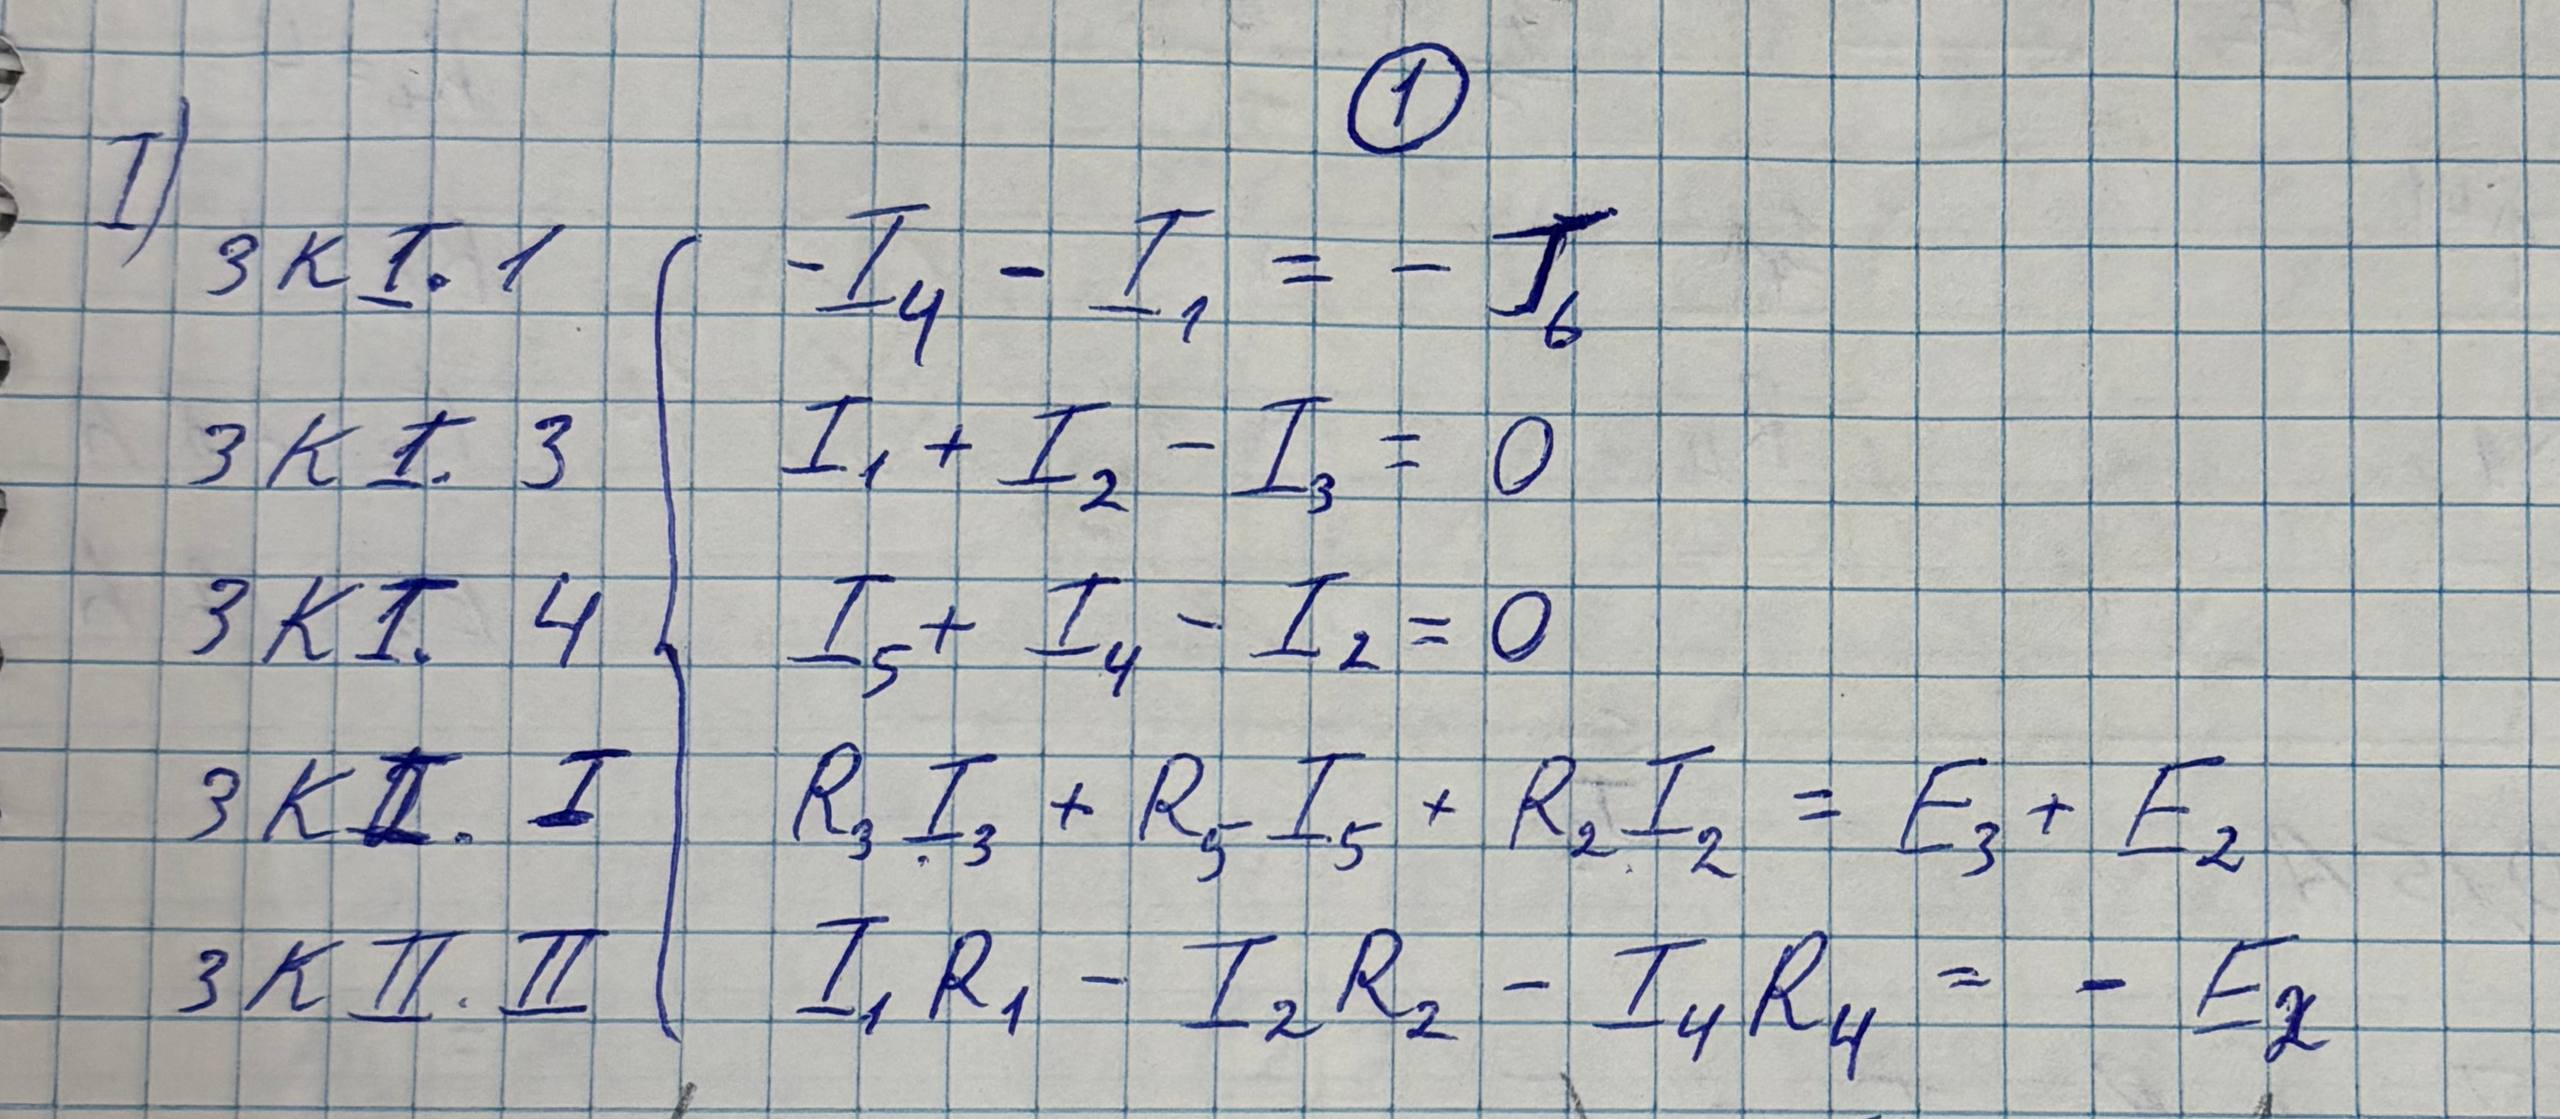 ①
I)
ЗКI. 1 -I₄ - I₁ = - J₆
ЗКI. 3 I₁ + I₂ - I₃ = 0
ЗКI. 4 I₅ + I₄ - I₂ = 0
ЗКII. I R₃I₃ + R₅I₅ + R₂I₂ = E₃ + E₂
ЗКII. II I₁R₁ - I₂R₂ - I₄R₄ = - E₂